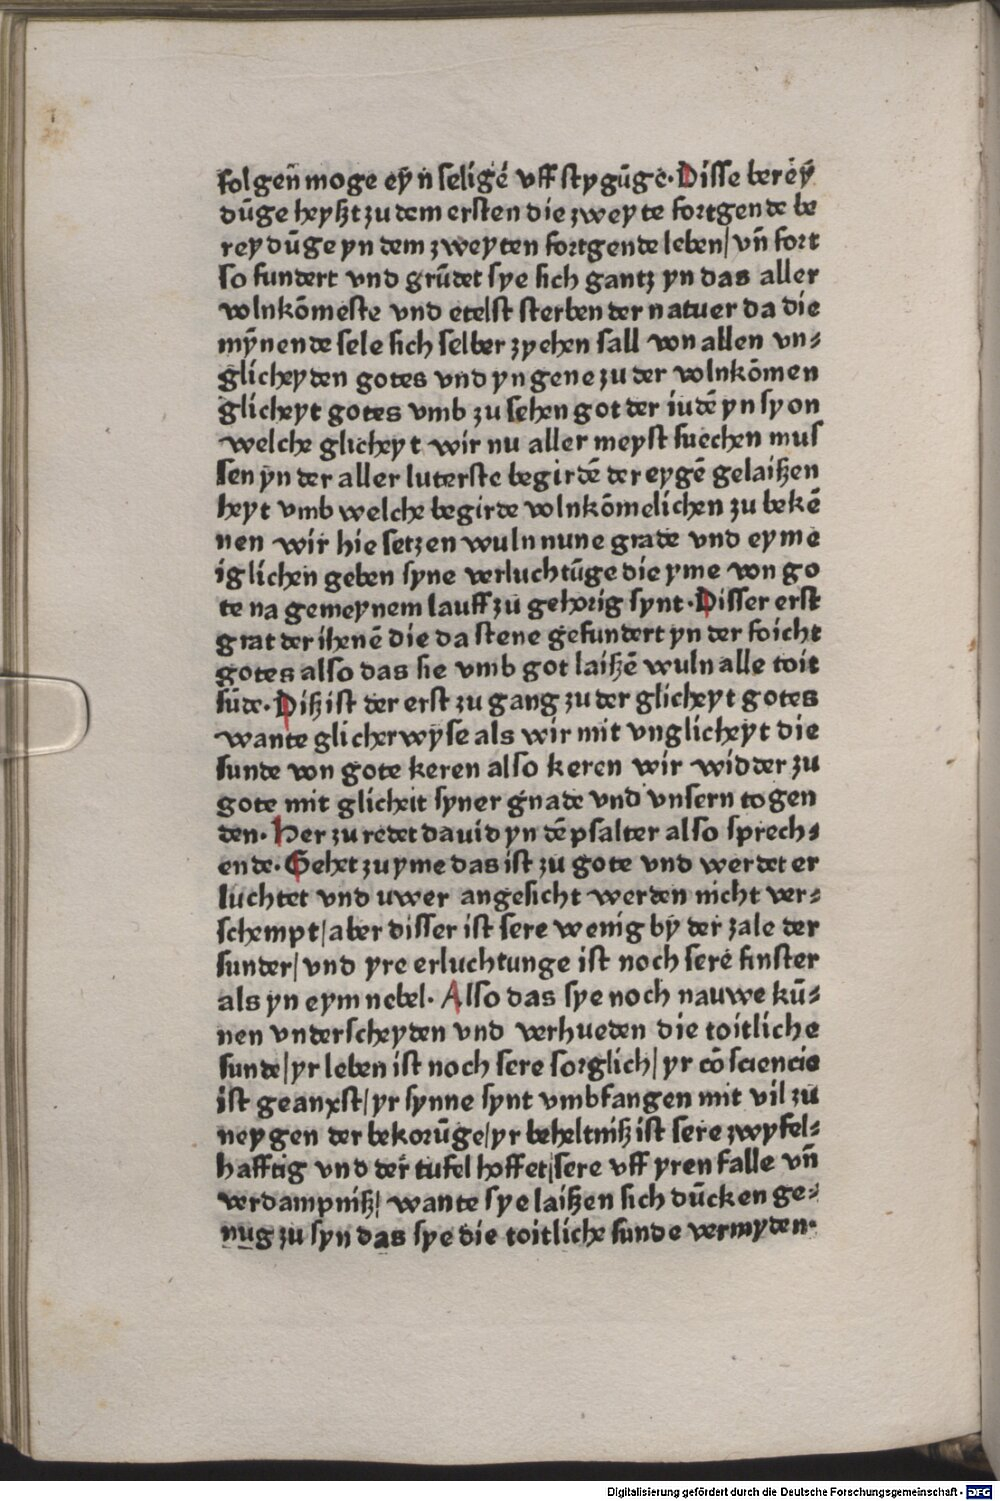 folgen̄ moge eyn̄ seligē vff stygūge. Disse berey
dūge heyßt zu dem ersten die zweyte fortgende be
reydūge yn dem zweyten fortgende leben/ vn̄ fort
so fundert vnd grūdet sye sich gantz yn das aller
volnkōmeste vnd etelst sterben der natuer da die
mȳnende sele sich selber zyehen sall von allen vn⸗
glicheyden gotes vnd yngene zu der volnkōmen
glicheyt gotes vmb zu sehen got der iudē yn syon
welche glicheyt wir nu aller meyst suechen mus
sen yn der aller luterste begirdē der eygē gelaißen
heyt vmb welche begirde volnkōmelichen zu bekē
nen wir hie setzen wuln nune grade vnd eyme
iglichen geben syne verluchtūge die yme von go
te na gemeynem lauff zu gehorig synt. Disser erst
grat der ihenē die da stene gefundert yn der foicht
gotes also das sie vmb got laißē wuln alle toit
sūde. Diß ist der erst zu gang zu der glicheyt gotes
wante glicher wyse als wir mit vnglicheyt die
sunde von gote keren also keren wir widder zu
gote mit glicheit syner gnade vnd vnsern togen
den. Her zu redet dauid yn dē psalter also sprech⸗
ende. Gehet zu yme das ist zu gote vnd werdet er
luchtet vnd uwer angesicht werden nicht ver⸗
schempt/ aber disser ist sere wenig by der zale der
sunder/ vnd yre erluchtunge ist noch sere finster
als yn eym nebel. Also das sye noch nauwe kū⸗
nen vnderscheyden vnd verhueden die toitliche
sunde/ yr leben ist noch sere sorglich/ yr cōsciencie
ist geanxst/ yr synne synt vmbfangen mit vil zu
neygen der bekorūge/ yr beheltniß ist sere zwyfel⸗
hafftig vnd der tufel hoffet/ sere vff yren falle vn̄
verdampniß/ wante sye laißen sich dūcken ge⸗
nug zu syn das sye die toitliche sunde vermyden.
Digitalisierung gefördert durch die Deutsche Forschungsgemeinschaft - DFG